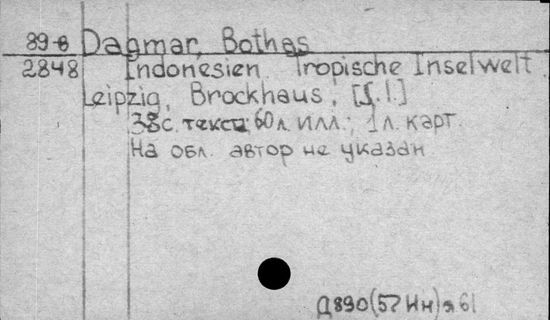 89-в Dagmar, Bothas
2848 Indonesien. Tropische Inselwelt.
Leipzig, Brockhaus, [S.l.]
38с. текста 60л. илл.; 1л. карт.
На обл. автор не указан
Д890(57Ин)я61